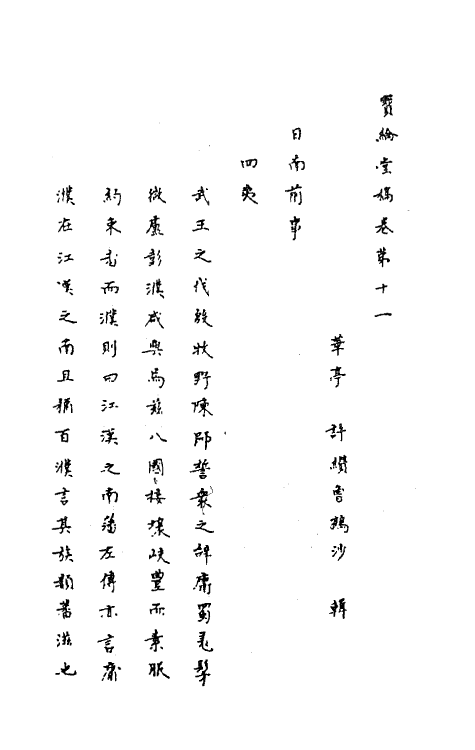 寶綸堂稿卷第十一
華亭 許纘曾鶴沙 輯
日南前事
四夷
武王之伐殷牧野陳師誓衆之辭庸蜀羌髳
微盧彭濮咸與焉玆八國接壤岐豐而素服
約束者而濮則曰江漢之南蓋左傳亦言庸
濮在江漢之南且稱百濮言其族類蕃滋也